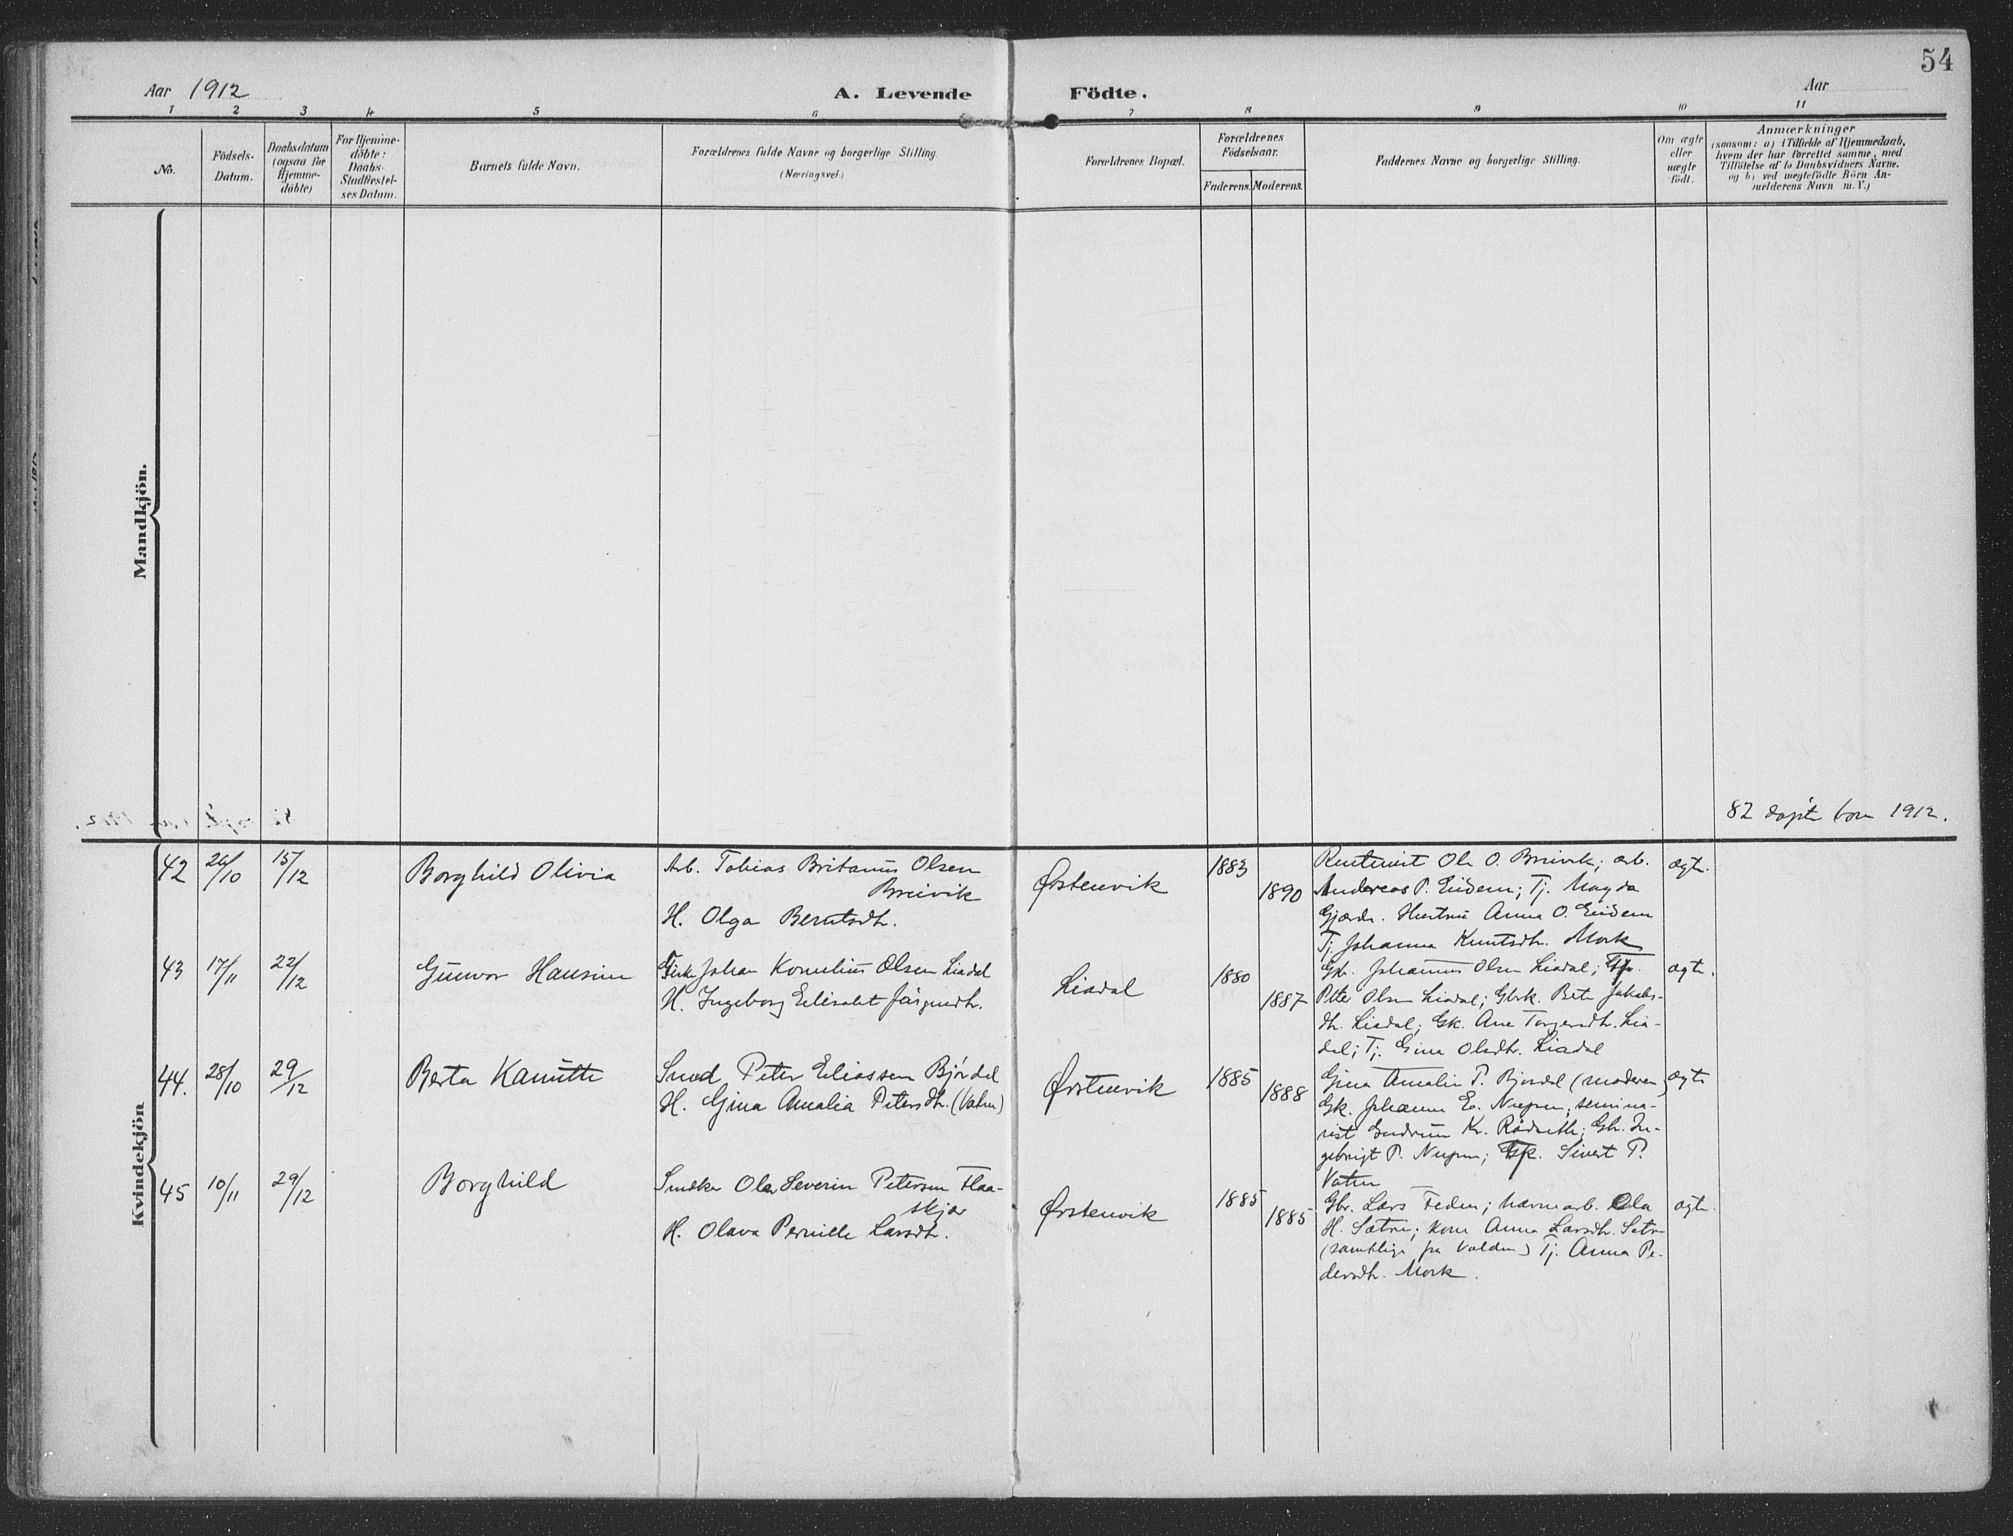 54
Aar 1912
A. Levende Födte.
Aar
1 2 3 4 5 6 7 8 9 10 11
No.
Födsels-
Datum.
Daabsdatum
(ogsaa for
Hjemme-
döbte)
For Hjemme-
döbte:
Daabs-
Stadfestel-
ses Datum.
Barnets fulde Navn.
Forældrenes fulde Navne og borgerlige Stilling.
(Næringsvei.)
Forældrenes Bopæl.
Forældrenes
Födselsaar.
Faderens. Moderens.
Faddernes Navne og borgerlige Stilling.
Om ægte
eller
uægte
födt.
Anmærkninger
(saasom: a) i Tilfælde af Hjemmedaab,
hvem der har forrettet samme, med
Tilföielse af to Daabsvidners Navne.
og b) ved uegtefödte Börn An-
melderens Navn m. V.)
Mandkjön.
82 døpte born 1912.
Kvindekjön
42 26/10 15/12 Borghild Olivia
Arb. Tobias Britanus Olsen
Brievik
H. Olga Berntsdtr.
Ørstenvik
1883
1890
Ole O. Brievik; arb.
Andereas P. Eidem; Tj. Magda
Gjærde. Hustru Anna O. Eidem
Tj. Johanna Knutsdtr. Mork
ægte.
43 17/11 22/12 Gunvor Hansine
Johan Kornelius Olsen Liadal
H. Ingeborg Elisabet
Liadal
1880
1887
Gk. Johannes Olsen Liadal;
Peter Olsen Liadal; Gbrk. Berte Jakobs-
dtr. Liadal; Gk. Ane Torgersdtr. Lia-
dal; Tj. Gina Olsdtr. Liadal
ægte.
44. 28/10 29/12 Berta Kanutte
Smed Peter Eliassen Bjørdal
H. Gjina Amalia Petersdtr. (Vatne)
Ørstenvik
1885
1888
Gjina Amalie P. Bjørdal (moderen)
Gk. Johanne E. semina-
rist Gudrun Kr. Rødseth; Gbr. In-
gebrigt P. Sivert P.
Vatne
ægte
45 10/11 29/12 Borghild
Snedker Ole Severin Petersen Flaa-
skjær
H. Olava Pernille Larsdtr.
Ørstenvik
1885
1885
Gbr. Lars Ola
H. Sætre; Kone Anna Larsdtr. Sætre
(samtlige fra Volden) Tj. Anna Pe-
dersdtr. Mork.
ægte.